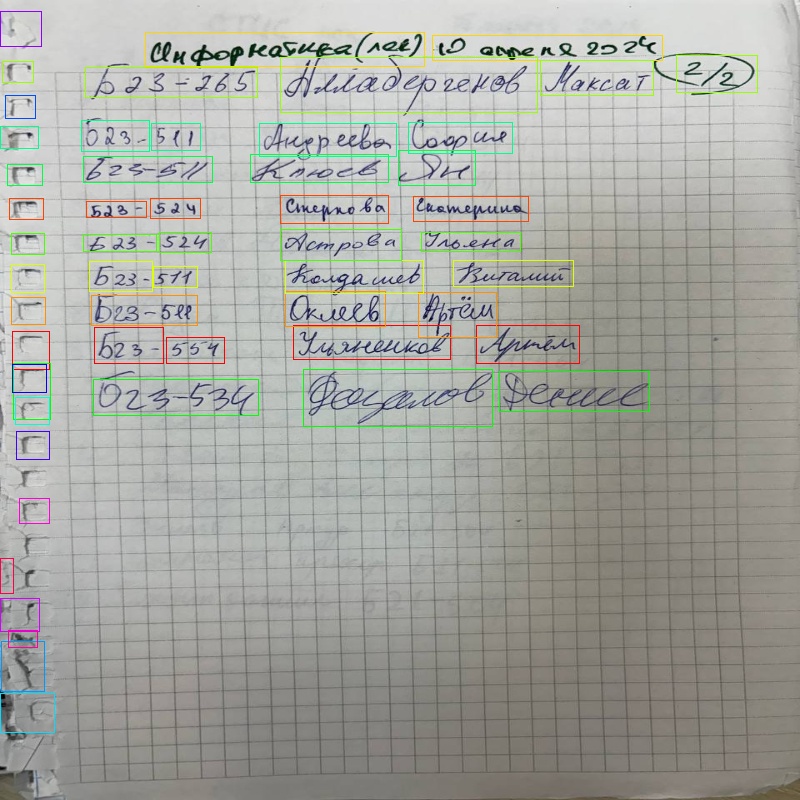 Информатика (лек) 10 апреля 2024
Б23-265 Алладергенов Максат 2/2
Б23-511 Андреева София
Б23-511 Клюев Ян
Б23-524 Стеркова Екатерина
Б23-524 Астрова Ульяна
Б23-511 Колдашев Виталий
Б23-511 Оклеев Артём
Б23-554 Ульяненков Артём
Б23-534 Денис